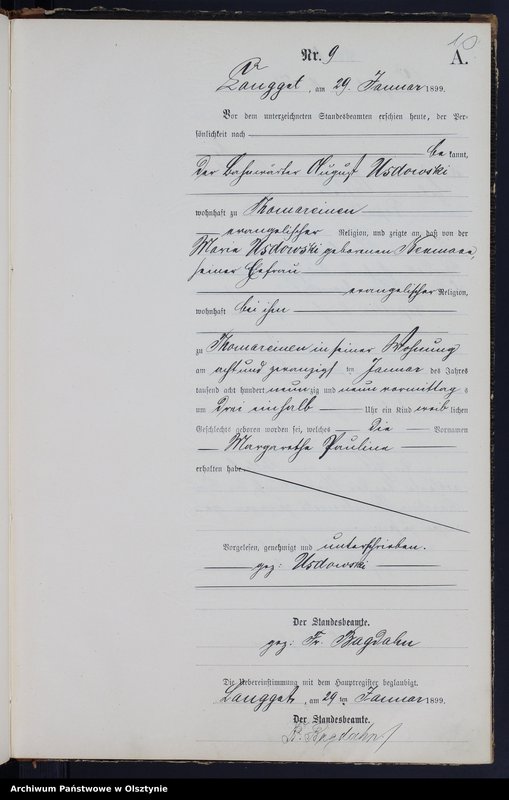 10
Nr. 9
A.
Langgut, am 29. Januar 1899.
Vor dem unterzeichneten Standesbeamten erschien heute, der Per-
sönlichkeit nach
be kannt,
der Bahnwärter August Usdowski
wohnhaft zu Thomareinen
evangelischer Religion, und zeigte an, daß von der
Marie Usdowski geborenen Neumann,
seiner Ehefrau
evangelischer Religion,
wohnhaft bei ihm
zu Thomareinen in seiner Wohnung
am acht und zwanzigs ten Januar des Jahres
tausend acht hundert neun zig und neun vormittag s
um drei einhalb Uhr ein Kind weib lichen
Geschlechts geboren worden sei, welches die Vornamen
Margarethe Pauline
erhalten habe.
Vorgelesen, genehmigt und unterschrieben.
gez: Usdowski
Der Standesbeamte.
gez: Fr. Bagdahn
Die Uebereinstimmung mit dem Hauptregister beglaubigt.
Langgut, am 29 ten Januar 1899.
Der Standesbeamte.
Bagdahn
Archiwum Państwowe w Olsztynie